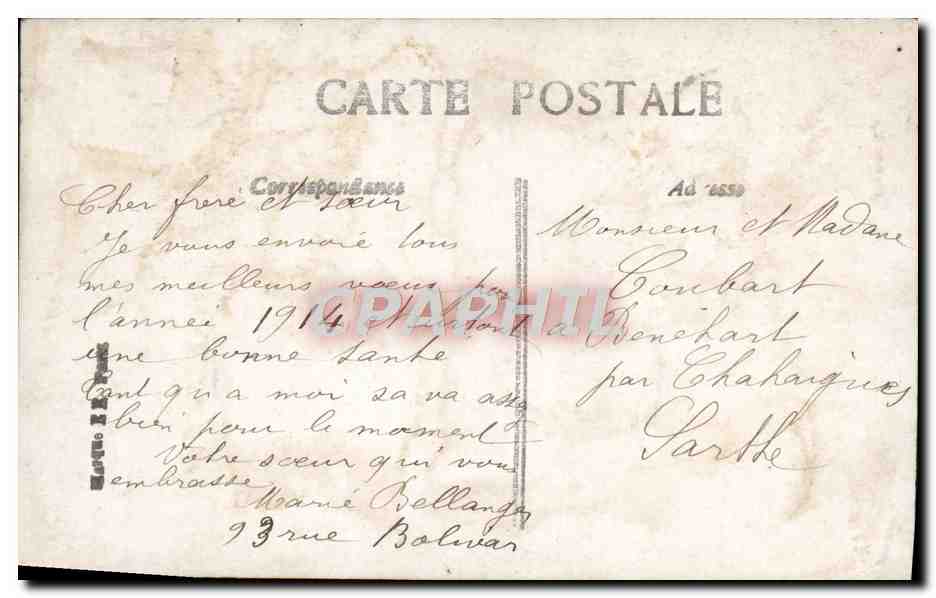 CARTE POSTALE
Correspondance
Cher frere et sœur
Je vous envoie tous
mes meilleurs vœux pour
l'année 1914 et surtout
une bonne santé
Tant qu a moi sa va assez
bien pour le moment
Votre sœur qui vous
embrasse
Marie Bellanger
93 rue Bolivar
Adresse
Monsieur et Madame
Coubart
a Benéhart
par Chahaignes
Sarthe
Marque
Paris
CPAPHIL